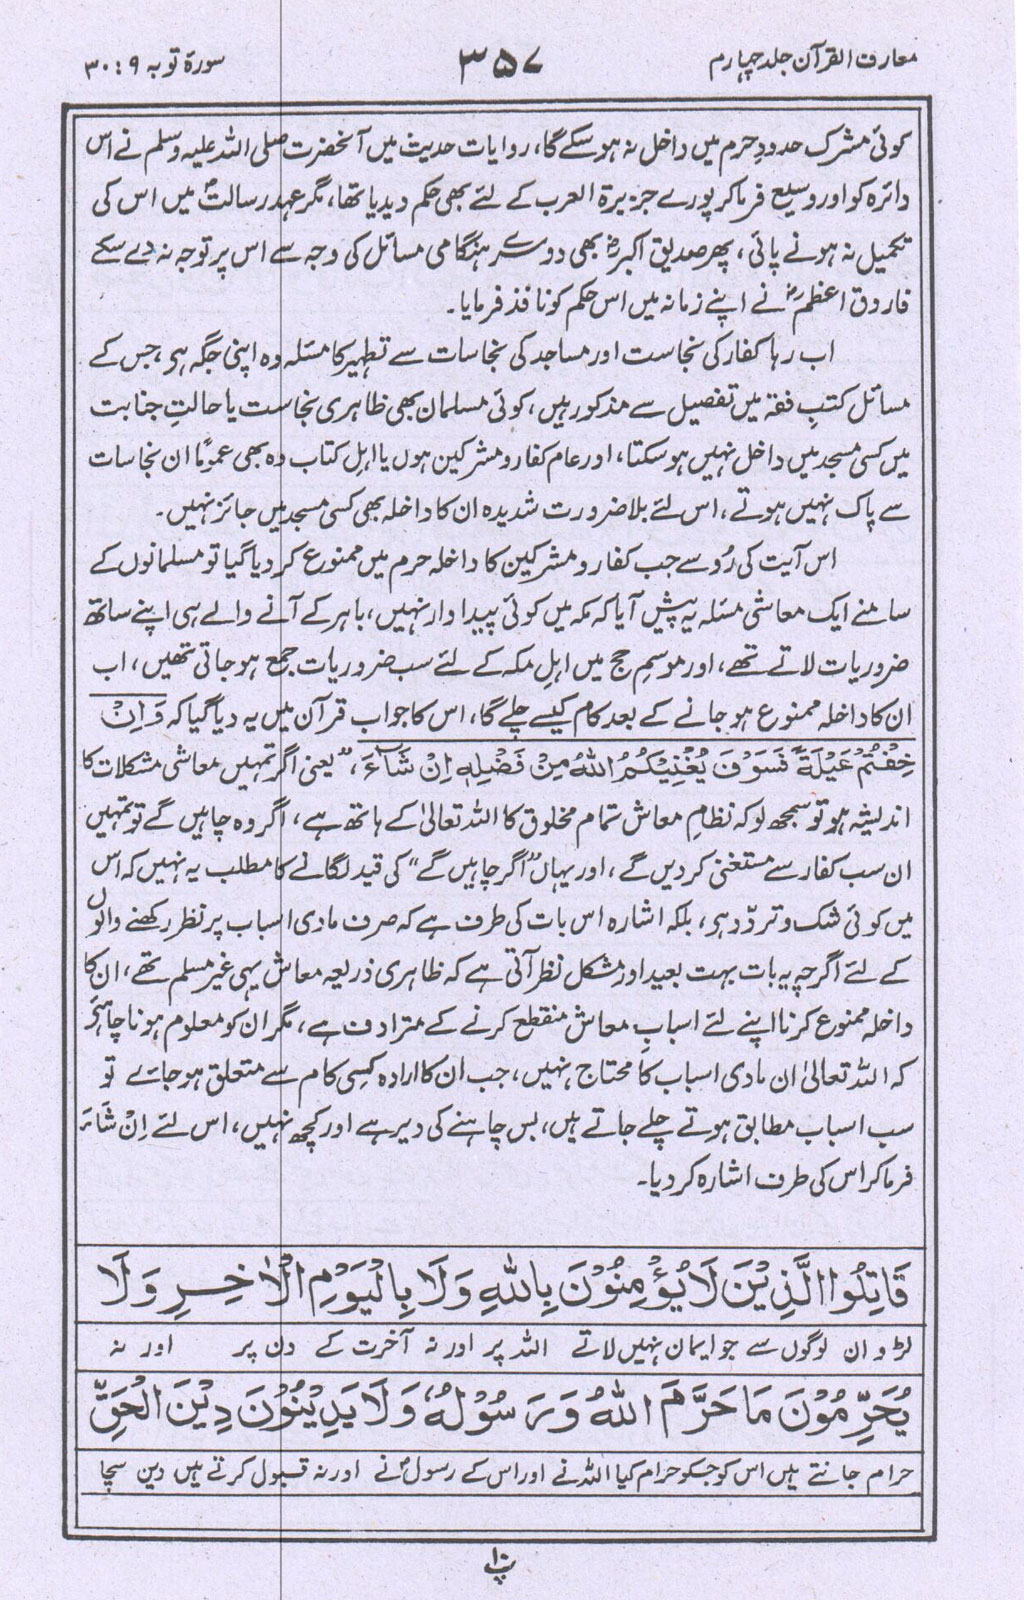 معارف القرآن جلد چہارم
۳۵۷
سورۃ توبہ ۹ : ۳۰
کوئی مشرک حدودِ حرم میں داخل نہ ہوسکے گا، روایات حدیث میں آنحضرت صلی اللہ علیہ وسلم نے اس
دائرہ کو اور وسیع فرما کر پورے جزیرۃ العرب کے لئے بھی حکم دیدیا تھا، مگر عہد رسالتؐ میں اس کی
تکمیل نہ ہونے پائی، پھر صدیق اکبرؓ بھی دوسرے ہنگامی مسائل کی وجہ سے اس پر توجہ نہ دے سکے
فاروق اعظمؓ نے اپنے زمانہ میں اس حکم کو نافذ فرمایا۔
اب رہا کفار کی نجاست اور مساجد کی نجاسات سے تطہیر کا مسئلہ وہ اپنی جگہ ہی، جس کے
مسائل کتبِ فقہ میں تفصیل سے مذکور ہیں، کوئی مسلمان بھی ظاہری نجاست یا حالتِ جنابت
میں کسی مسجد میں داخل نہیں ہوسکتا، اور عام کفار و مشرکین ہوں یا اہلِ کتاب وہ بھی عموماً ان نجاسات
سے پاک نہیں ہوتے، اس لئے بلا ضرورت شدیدہ ان کا داخلہ بھی کسی مسجد میں جائز نہیں۔
اس آیت کی رُو سے جب کفار و مشرکین کا داخلہ حرم میں ممنوع کر دیا گیا تو مسلمانوں کے
سامنے ایک معاشی مسئلہ یہ پیش آیا کہ مکہ میں کوئی پیداوار نہیں، باہر کے آنے والے ہی اپنے ساتھ
ضروریات لاتے تھے، اور موسمِ حج میں اہلِ مکہ کے لئے سب ضروریات جمع ہوجاتی تھیں، اب
ان کا داخلہ ممنوع ہوجانے کے بعد کام کیسے چلے گا، اس کا جواب قرآن میں یہ دیا گیا کہ وَاِنْ
خِفْتُمْ عَيْلَةً فَسَوْفَ يُغْنِيْكُمُ اللّٰهُ مِنْ فَضْلِهٖٓ اِنْ شَآءَ، ”یعنی اگر تمہیں معاشی مشکلات کا
اندیشہ ہو تو سمجھ لو کہ نظامِ معاش تمام مخلوق کا اللہ تعالیٰ کے ہاتھ ہے، اگر وہ چاہیں گے تو تمہیں
ان سب کفار سے مستغنی کر دیں گے، اور یہاں ”اگر چاہیں گے“ کی قید لگانے کا مطلب یہ نہیں کہ اس
میں کوئی شک و تردّد ہی، بلکہ اشارہ اس بات کی طرف ہے کہ صرف مادی اسباب پر نظر رکھنے والوں
کے لئے اگرچہ یہ بات بہت بعید اور مشکل نظر آتی ہے کہ ظاہری ذریعہ معاش یہی غیر مسلم تھے، ان کا
داخلہ ممنوع کرنا اپنے لئے اسبابِ معاش منقطع کرنے کے مترادف ہے، مگر ان کو معلوم ہونا چاہئے
کہ اللہ تعالیٰ ان مادی اسباب کا محتاج نہیں، جب ان کا ارادہ کسی کام سے متعلق ہوجائے تو
سب اسباب مطابق ہوتے چلے جاتے ہیں، بس چاہنے کی دیر ہے اور کچھ نہیں، اس لئے اِنْ شَآءَ
فرما کر اس کی طرف اشارہ کر دیا۔
قَاتِلُوا الَّذِيْنَ لَا يُؤْمِنُوْنَ بِاللّٰهِ وَلَا بِالْيَوْمِ الْاٰخِرِ وَلَا
لڑو ان لوگوں سے جو ایمان نہیں لاتے اللہ پر اور نہ آخرت کے دن پر اور نہ
يُحَرِّمُوْنَ مَا حَرَّمَ اللّٰهُ وَرَسُوْلُهٗ وَلَا يَدِيْنُوْنَ دِيْنَ الْحَقِّ
حرام جانتے ہیں اس کو جسکو حرام کیا اللہ نے اور اس کے رسولؐ نے اور نہ قبول کرتے ہیں دین سچا
پ۱۰